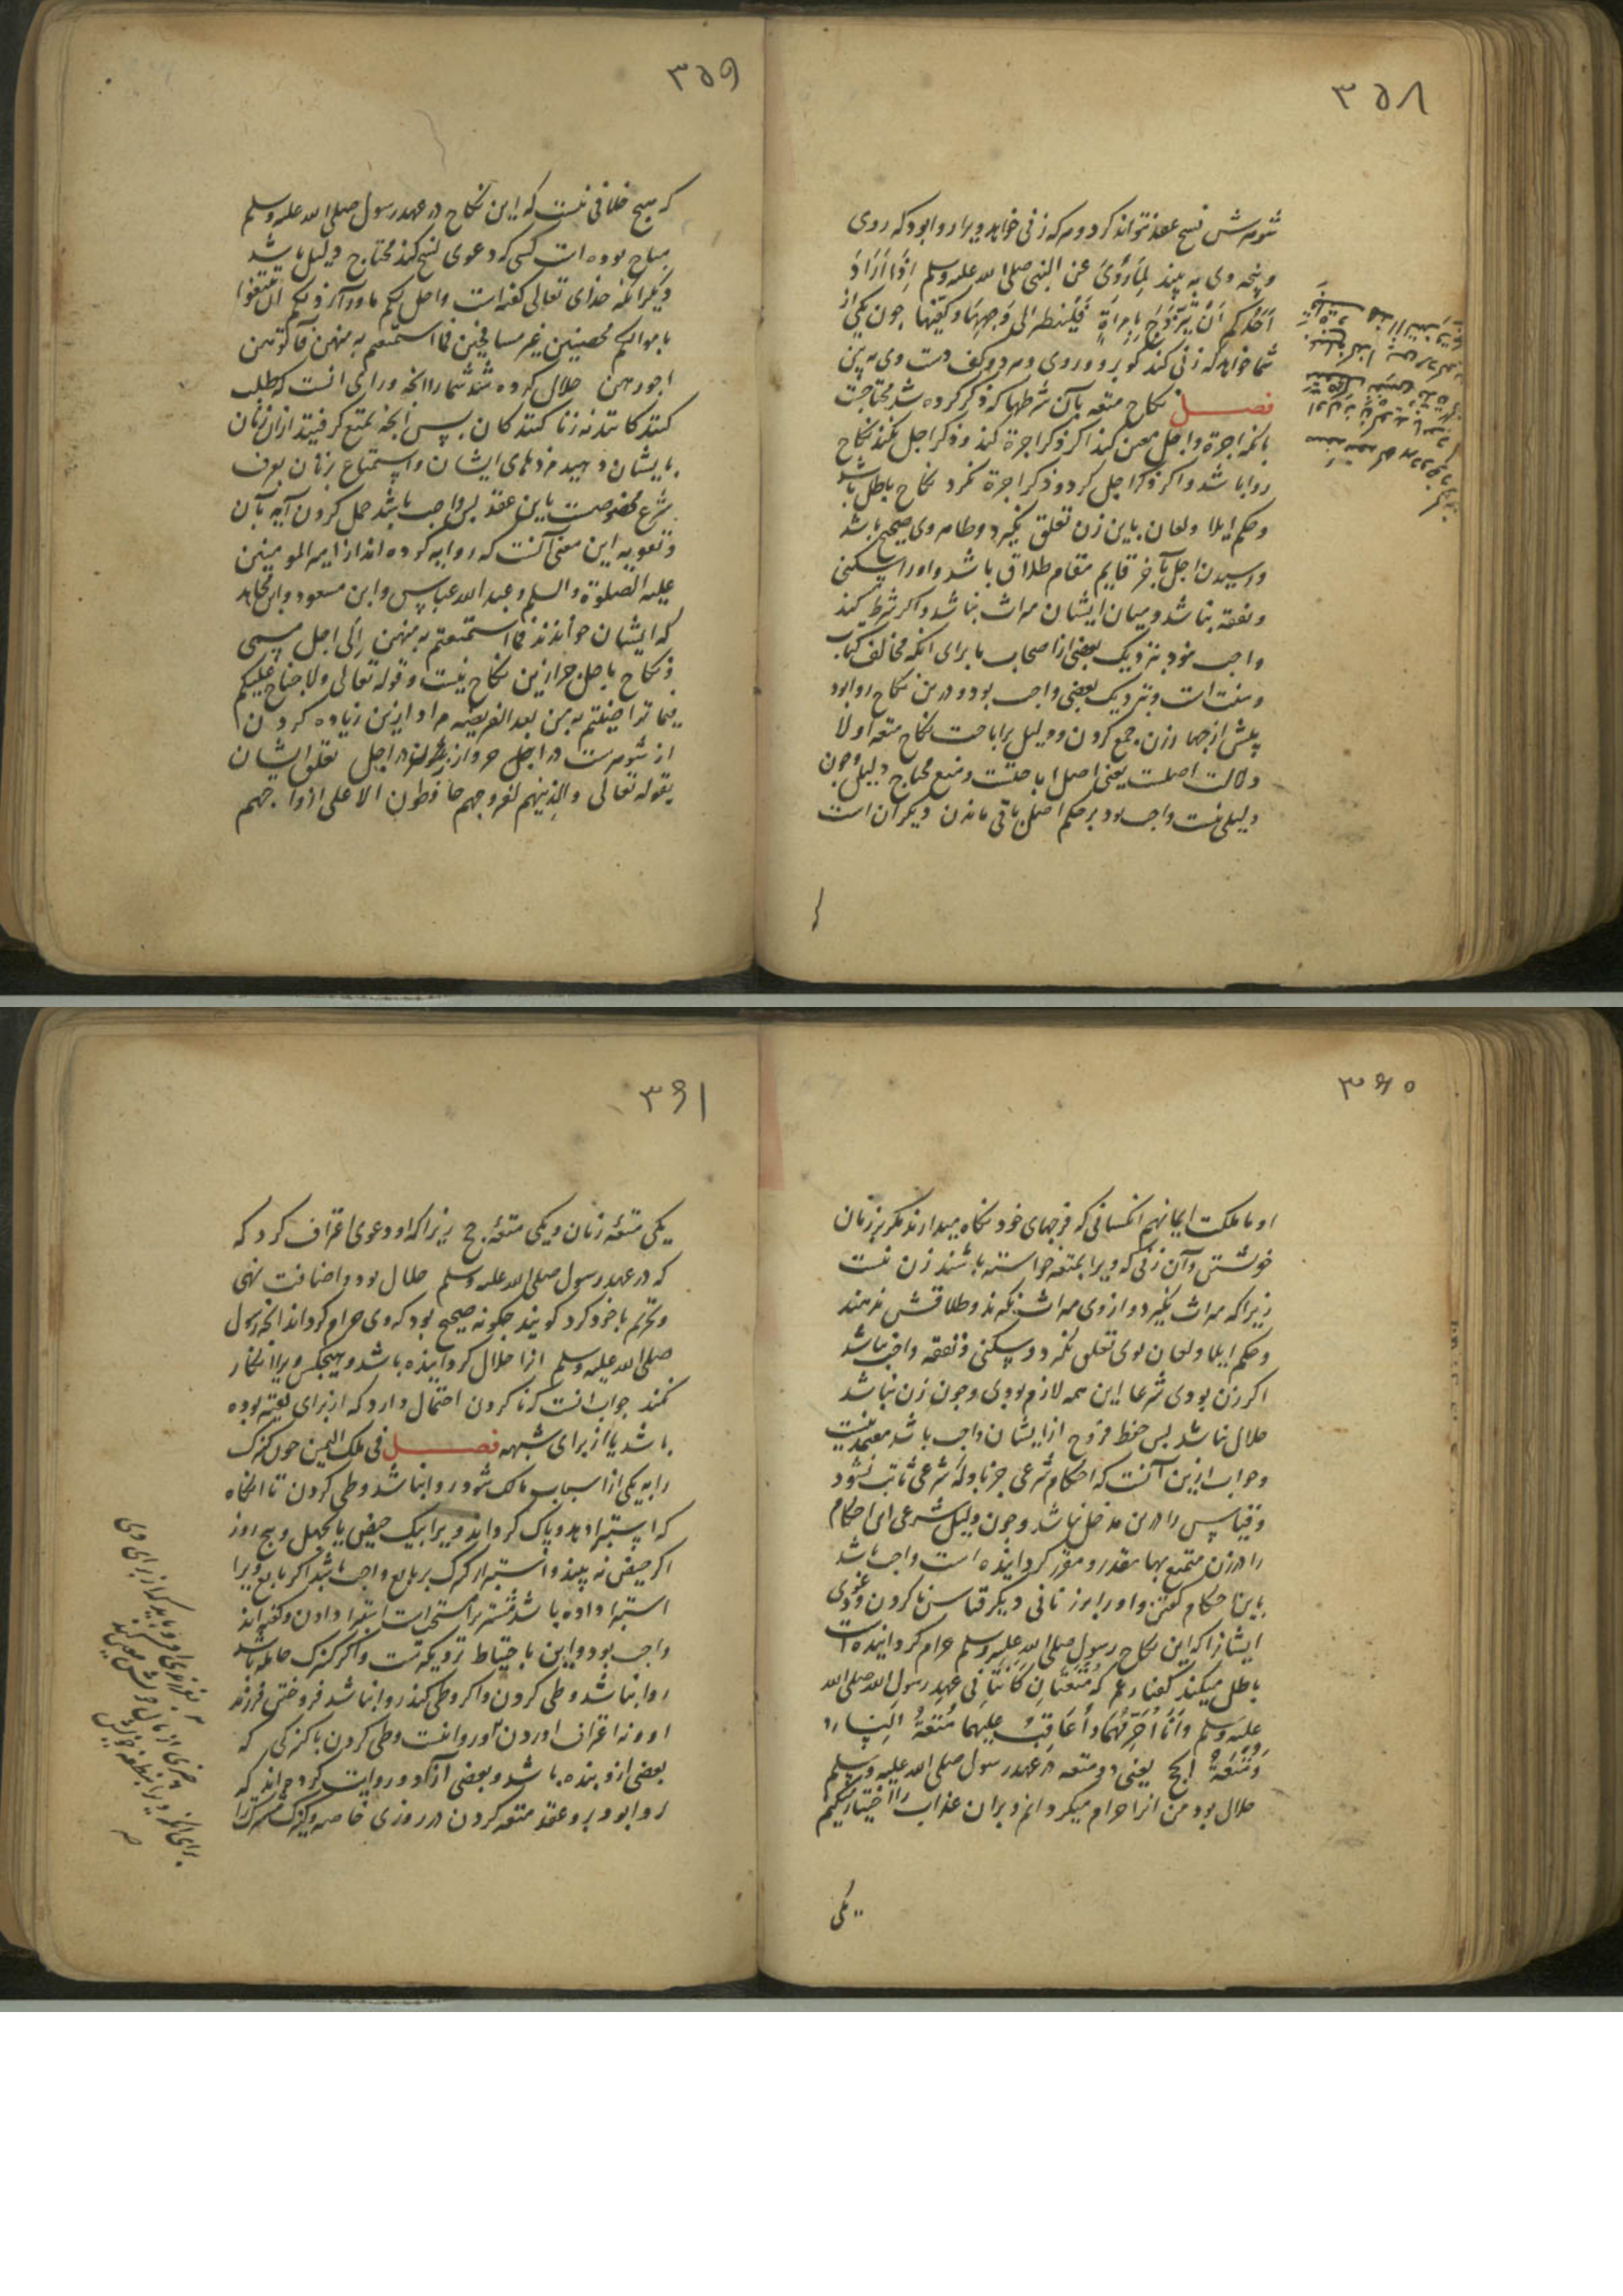 ۳۵۸
شوهرش فسخ عقد تواند کرد و هر که زنی خواهد ویرا روا بود که روی
و پنجه وی به بیند لِمَا رُوِیَ عَنِ النبی صلی الله علیه وسلم اِذَا اَرَادَ
اَحَدُکم اَنْ یَتَزَوَّجَ بِامرَاةٍ فَلْیَنظر الی وَجهِهَا وکفیها چون یکی از
شما خواهد که زنی کند کو برو و روی و هر دو کف دست وی به بین
فصل نکاح متعه با آن شرطها که ذکر کرده شد محتاجست
بانکه اجرة و اجل معین کند اکر ذکر اجرة کند و ذکر اجل نکند نکاح
روا باشد و اکر ذکر اجل کرد و ذکر اجرة نکرد نکاح باطل باشد
و حکم ایلا و لعان باین زن تعلق نگیرد و ظهار وی صحیح باشد
و رسیدن اجل بآخر قایم مقام طلاق باشد و او را سکنی
و نفقه نباشد و میان ایشان میراث نباشد و اکر شرط کنند
واجب نبود نزدیک بعضی از اصحاب ما برای انکه مخالف کتاب
و سنت است و نزدیک بعضی واجب بود و درین نکاح روا بود
بیش از چهار زن جمع کردن و دلیل بر اباحت نکاح متعه اولا
دلالت اصلست یعنی اصل اباحتست و منع محتاج دلیل چون
دلیلی نیست واجب بود بر حکم اصل باقی ماندن دیکر آن است
۳۵۹
که هیچ خلافی نیست که این نکاح در عهد رسول صلی الله علیه وسلم
مباح بوده است کسی که دعوی نسخ کند محتاج دلیل باشد
دیکر انکه خدای تعالی گفته است واحل لکم ماوراء ذلکم ان تبتغوا
باموالکم محصنین غیر مسافحین فما استمتعتم به منهن فآتوهن
اجورهن حلال کرده شد شما را انچه ورای انست که طلب
کنند کانند نه زنا کنند کان پس آنچه تمتع کرفتید ازان زنان
بایشان دهید مزدهای ایشان و استمتاع بزنان بعرف
شرع مخصوصست باین عقد پس واجب باشد حمل کردن آیه بآن
و تقویه این معنی آنست که روایه کرده اند از امیر المومنین
علیه الصلوة والسلم و عبد الله عباس و ابن مسعود و ابن مجاهد
که ایشان خوانندند فما استمتعتم به منهن اِلَی اجل مسمی
و نکاح باجل جز ازین نکاح نیست و قوله تعالی ولا جناح علیکم
فیما تراضیتم به من بعد الفریضه مراد ازین زیاده کردن
از شوهرست در اجر و از زن در اجل تعلق ایشان
بقوله تعالی والذینهم لفروجهم حافظون الا علی ازواجهم
۳۶۰
او ما ملکت ایمانهم انکسانی که فرجهای خود نکاه میدارند مکر بر زنان
خویشتن و آن زنی که ویرا بمتعه خواسته باشند زن نیست
زیرا که میراث نکیرد و از وی میراث نکیرند و طلاقش ندهند
و حکم ایلا و لعان بوی تعلق نکیرد و سکنی و نفقه واجب نباشد
اکر زن بودی شرعا این همه لازم بودی و چون زن نباشد
حلال نباشد پس حفظ فروج از ایشان واجب باشد معتمد نیست
و جواب ازین آنست که احکام شرعی جز بادلهٔ شرعی ثابت نشود
و قیاس را درین مدخل نباشد و چون دلیل شرعی این احکام
را در زن متمتع بها مقدر و مقرر کردانیده است واجب باشد
باین احکام کفتن و او را بر زنانی دیکر قیاس ناکردن و دعوی
ایشانرا که این نکاح رسول صلی الله علیه وسلم حرام کردانیده است
باطل میکند کفتار عمر که مُتْعَتَانِ کَانَتَا فی عهد رسول الله صلی الله
علیه وسلم وَاَنَا اُحَرِّمُهُمَا وَاُعَاقِبُ علیهما مُتْعَةُ النِسَاء
وَمُتْعَةُ الحج یعنی دو متعه در عهد رسول صلی الله علیه وسلم
حلال بود من انرا حرام میکردانم و بران عذاب را اختیار میکنم
یکی
۳۶۱
یکی متعهٔ زنان و یکی متعهٔ حج زیرا که او دعوی اعتراف کرد که
که در عهد رسول صلی الله علیه وسلم حلال بود و اضافت نهی
و تحریم با خود کرد کویند چکونه صحیح بود که وی حرام کرداند انچه رسول
صلی الله علیه وسلم انرا حلال کردانیده باشد و هیچکس ویرا انکار
نکند جواب انست که ناکردن احتمال دارد که از برای تقیه بوده
باشد یا از برای شبهه فصل فی ملک الیمین چون کنیزک
را به یکی از اسباب مالک شود روا نباشد وطی کردن تا انکاه
که استبرا دهد و پاک کرداند ویرا بیک حیض یا بچهل و پنج روز
اکر حیض نه بیند و استبرا کنیزک بر بایع واجب باشد اکر بایع ویرا
استبرا داده باشد مشتری را مستحب است استبرا دادن و کفته اند
واجب بود و این باحتیاط نزدیکترست و اکر کنیزک حامله باشد
روا نباشد وطی کردن و اکر وطی کند روا نباشد فروختن فرزند
او و نه اعتراف اوردن او روا نیست وطی کردن با کنیزکی که
بعضی ازو بنده باشد و بعضی آزاد و روایت کرده اند که
روا بود برو عقد متعه کردن در روزی خاصه و کنیزک مشترک را